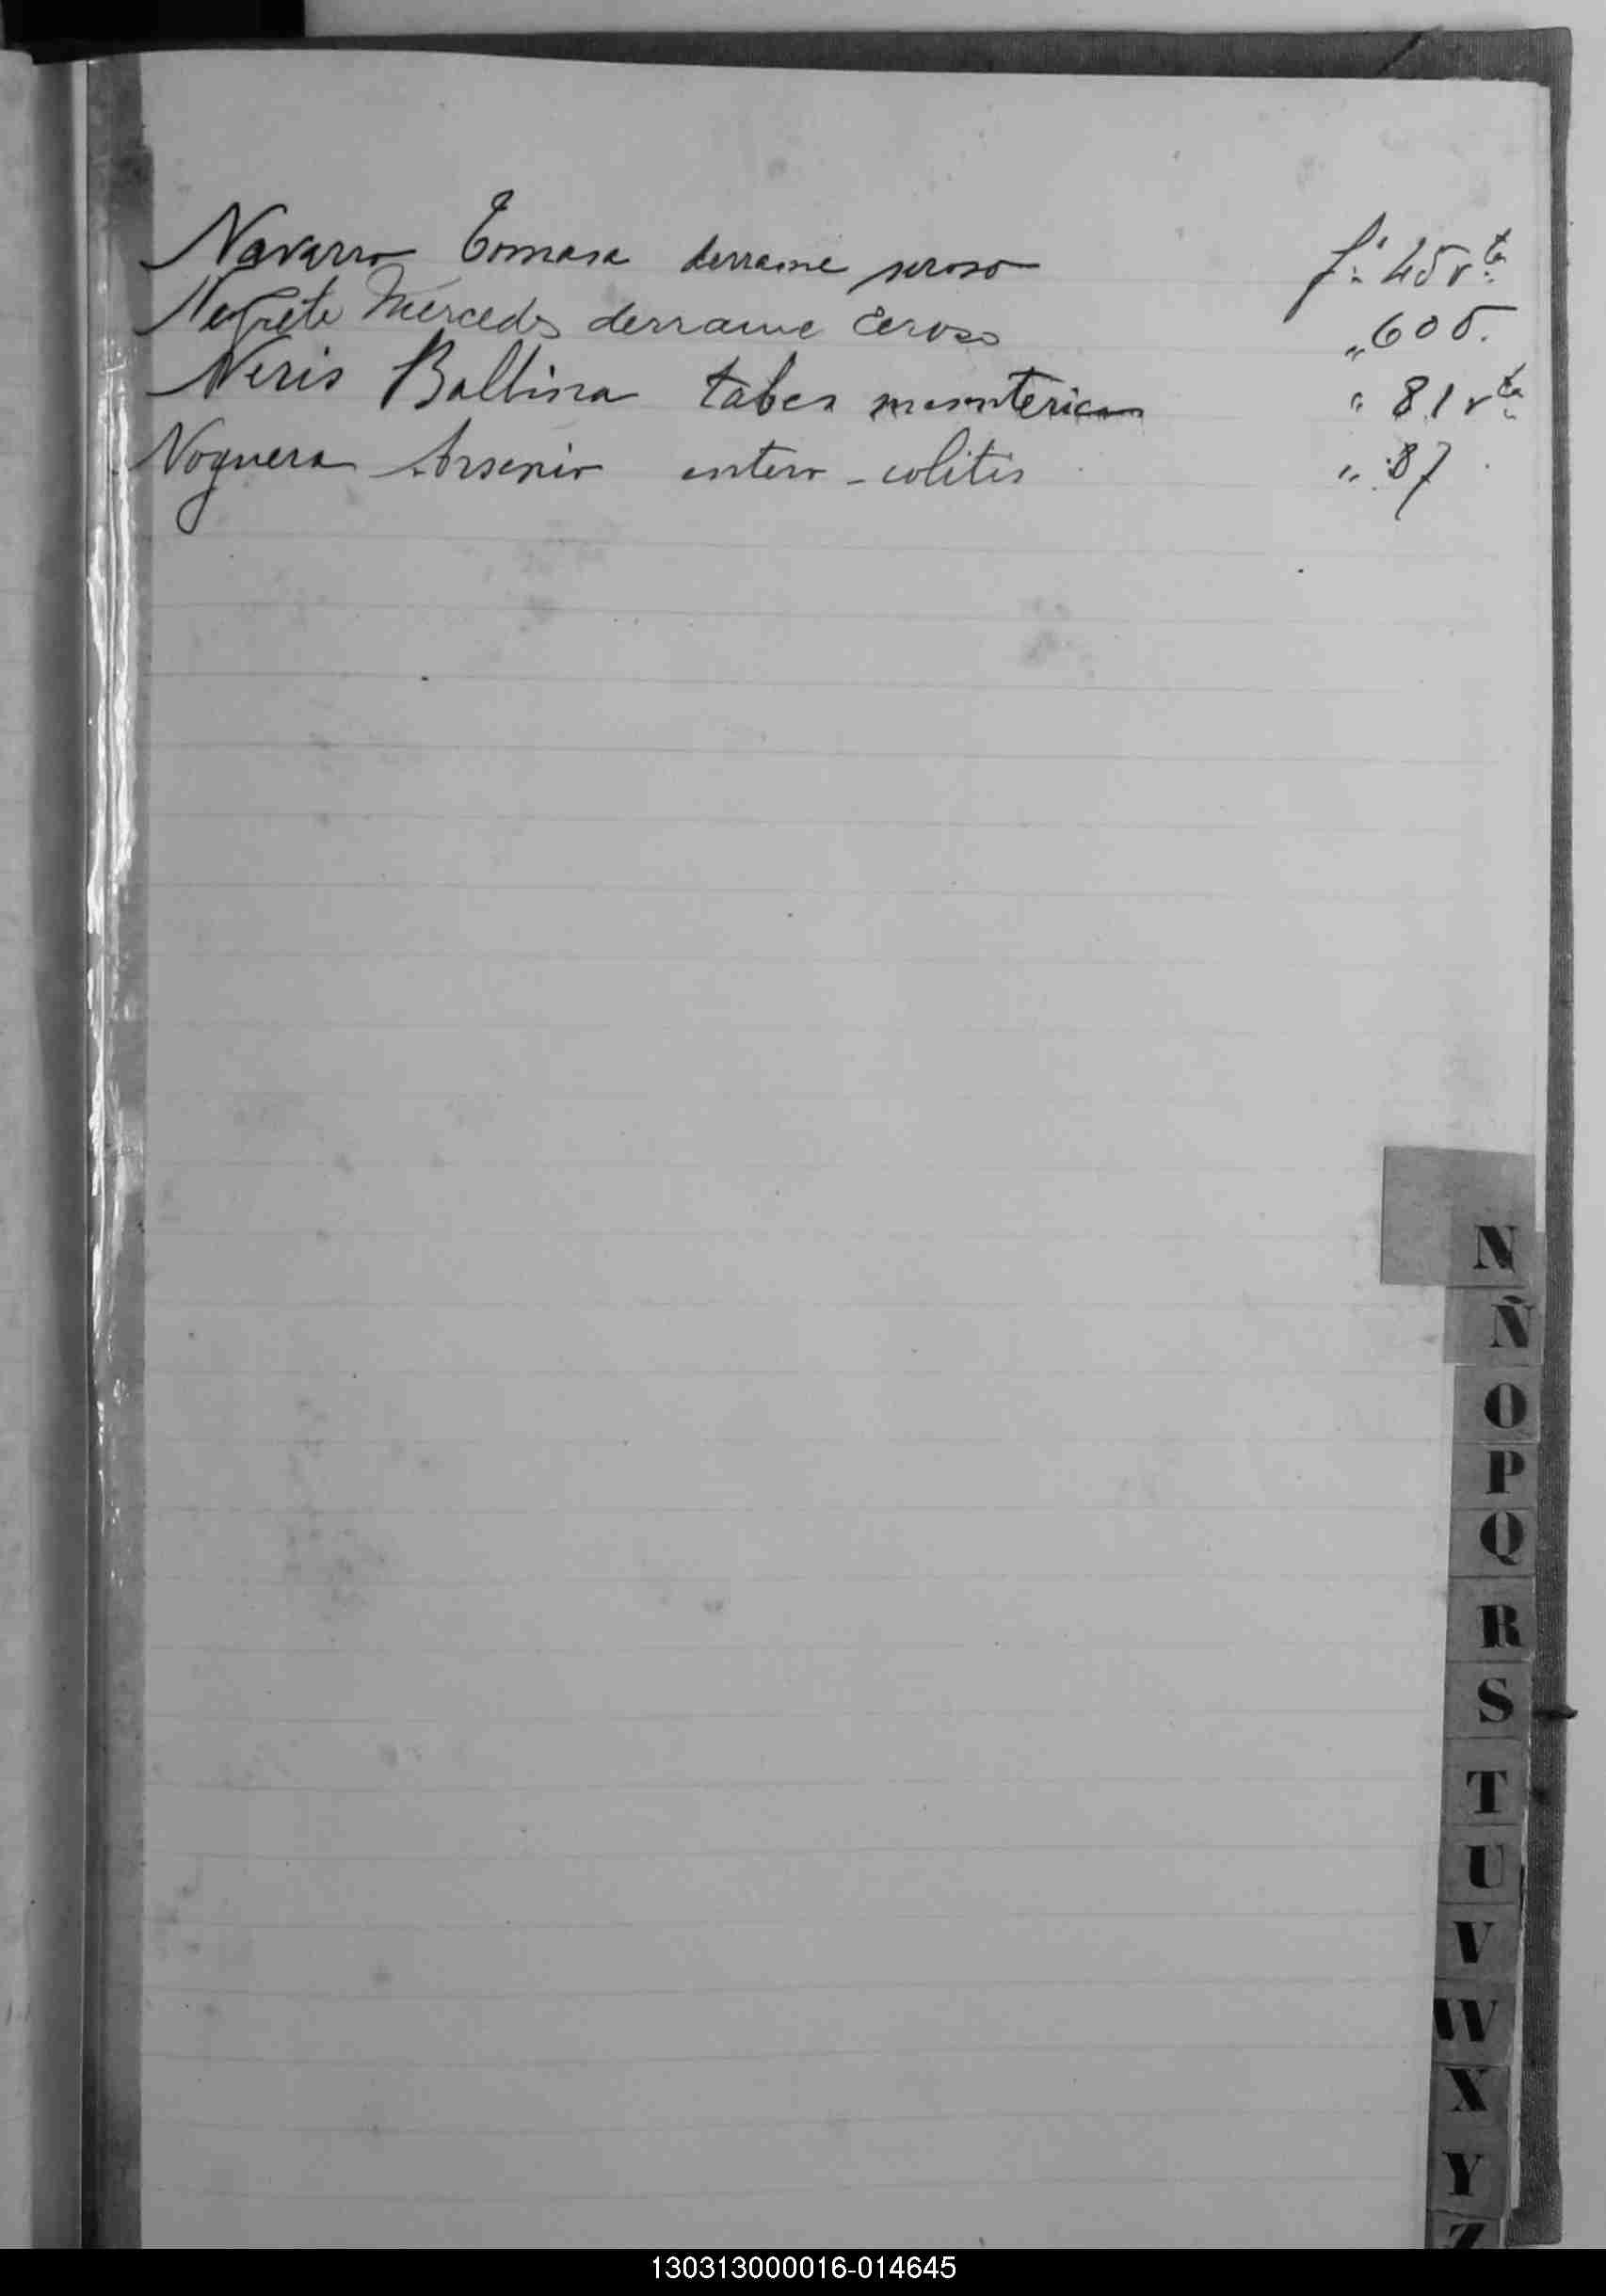 Navarro Tomasa derrame seroso f: 45 vta
Negrete Mercedes derrame ceroso " 60 v.
Neris Ballina tabes mesenterica " 81 vta
Noguera Arsenio entero - colitis " 87
N
Ñ
O
P
Q
R
S
T
U
V
W
X
Y
Z
130313000016-014645